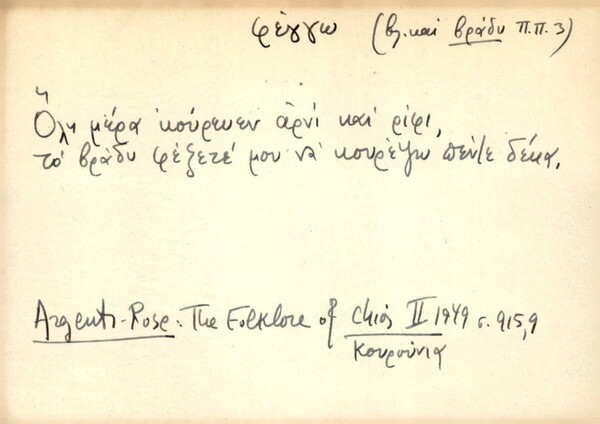 φέγγω (βλ. καὶ βράδυ π.π. 3)
Ὅλη μέρα 'κούρευεν ἀρνὶ καὶ ρίφι,
τὸ βράδυ φέξετέ μου νὰ κουρέψω πέντε δέκα.
Argenti-Rose. The Folklore of Chios II 1949 σ. 915,9
Κουρούνια